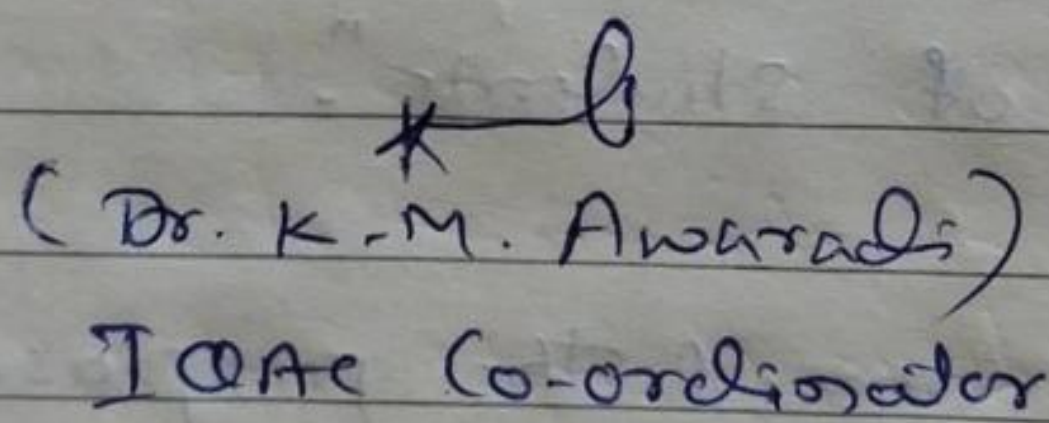 (Dr. K.M. Awaradi)
IQAC Co-ordinator